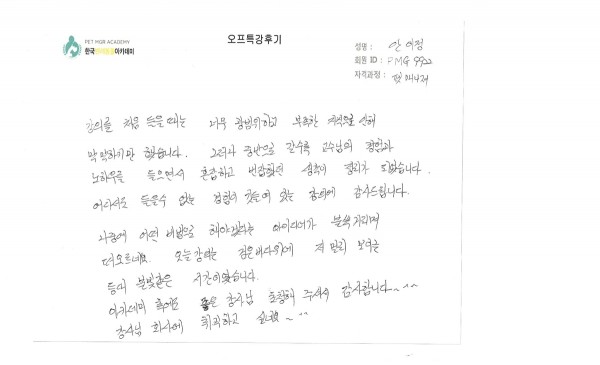 PET MGR ACADEMY
한국반려동물아카데미
오프특강후기
성명 : 안여정
회원 ID : PMG 9922
자격과정 : 펫매니저
강의를 처음 들을 때는 너무 광범위하고 부족한 계획으로 인해
막막하기만 했습니다. 그러나 중반으로 갈수록 교수님의 경험과
노하우를 들으면서 혼잡하고 번잡했던 생각이 정리가 되었습니다.
어디서도 들을수 없는 경험이 깃들여 있는 강의에 감사드립니다.
나중에 어떤 방법으로 해야겠다는 아이디어가 불쑥 거리며
떠오르네요. 오늘 강의는 검은 바다위에 저 멀리 보이는
등대 불빛같은 시간이었습니다.
아카데미 측에도 좋은 강사님 초청해 주셔서 감사합니다~~
강사님 회사에 취직하고 싶네요~~